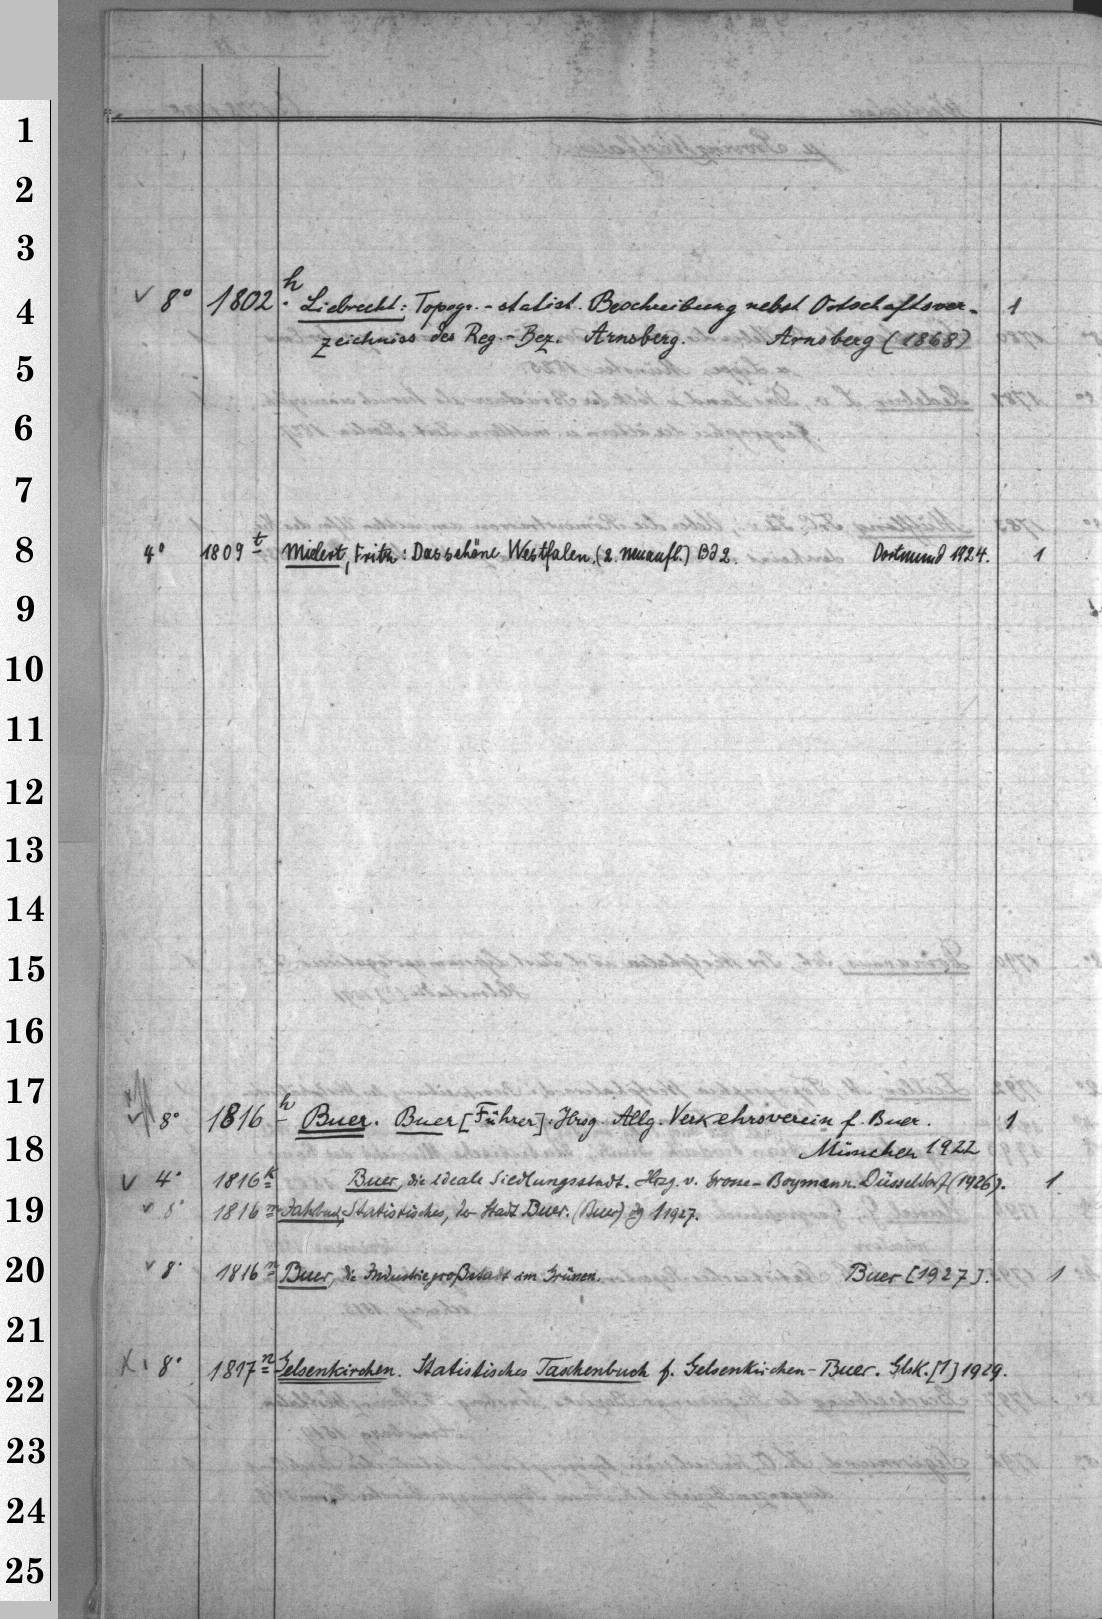 1
2
3
4
5
6
7
8
9
10
11
12
13
14
15
16
17
18
19
20
21
22
23
24
25
√ 8° 1802 h. Liebrecht: Topogr.-statist. Beschreibung nebst Ortschaftsver- 1
zeichniss des Reg.-Bez. Arnsberg. Arnsberg (1868)
4° 1809 t Mielert, Fritz: Das schöne Westfalen. (2. Neuaufl.) Bd 2. Dortmund 1924. 1
√ 8° 1816 h Buer. Buer [Führer]. Hrsg. Allg. Verkehrsverein f. Buer. 1
München 1922
√ 4° 1816 k Buer, die ideale Siedlungsstadt. Hrg. v. Grosse-Boymann. Düsseldorf (1926). 1
√ 8° 1816 m Jahrbuch, Statistisches, der Stadt Buer. (Buer) Jg 1 1927.
√ 8° 1816 n Buer, die Industriegroßstadt im Grünen. Buer [1927]. 1
X 8° 1817 n Gelsenkirchen. Statistisches Taschenbuch f. Gelsenkirchen-Buer. Glsk. [1] 1929.